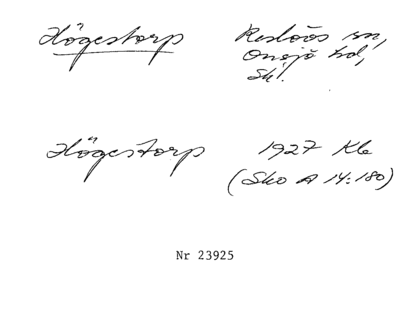 Högestorp Reslövs sn,
Onsjö hd,
Sk.
Högestorp 1927 Kb
(Sko A 14:180)
Nr 23925